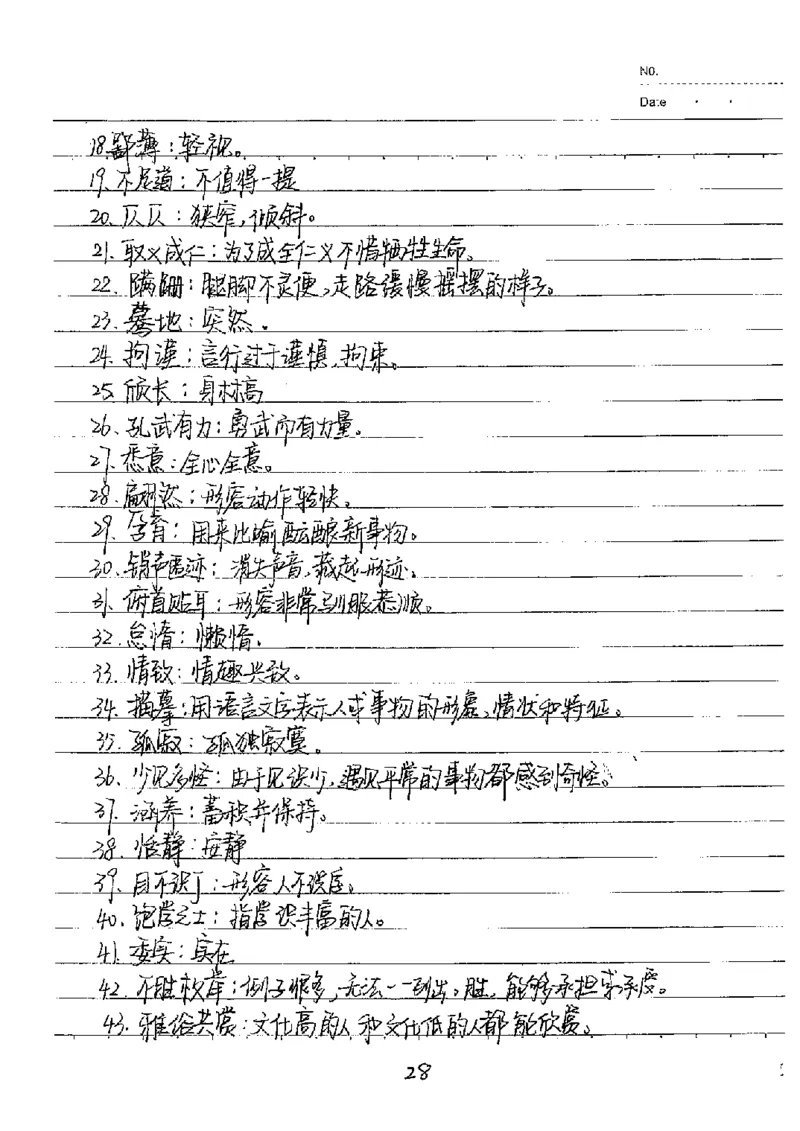 No.
Date
18.鄙薄：轻视。
19.不足道：不值得一提
20.仄仄：狭窄，倾斜。
21.取义成仁：为了成全仁义不惜牺牲生命。
22.蹒跚：腿脚不灵便，走路缓慢摇摆的样子。
23.蓦地：突然。
24.拘谨：言行过于谨慎，拘束。
25.颀长：身材高
26.孔武有力：勇武而有力量。
27.悉意：全心全意。
28.翩然：形容动作轻快。
29.孕育：用来比喻酝酿新事物。
30.销声匿迹：消失声音，藏起形迹。
31.俯首贴耳：形容非常驯服恭顺。
32.怠惰：懒惰。
33.情致：情趣兴致。
34.描摹：用语言文字表示人或事物的形象、情状和特征。
35.孤寂：孤独寂寞。
36.少见多怪：由于见识少，遇见平常的事物都感到奇怪。
37.涵养：蓄积并保持。
38.恬静：安静
39.目不识丁：形容人不识字。
40.饱学之士：指学识丰富的人。
41.委实：实在
42.不胜枚举：例子很多，无法一一列出。胜，能够承担或承受。
43.雅俗共赏：文化高的人和文化低的人都能欣赏。
28